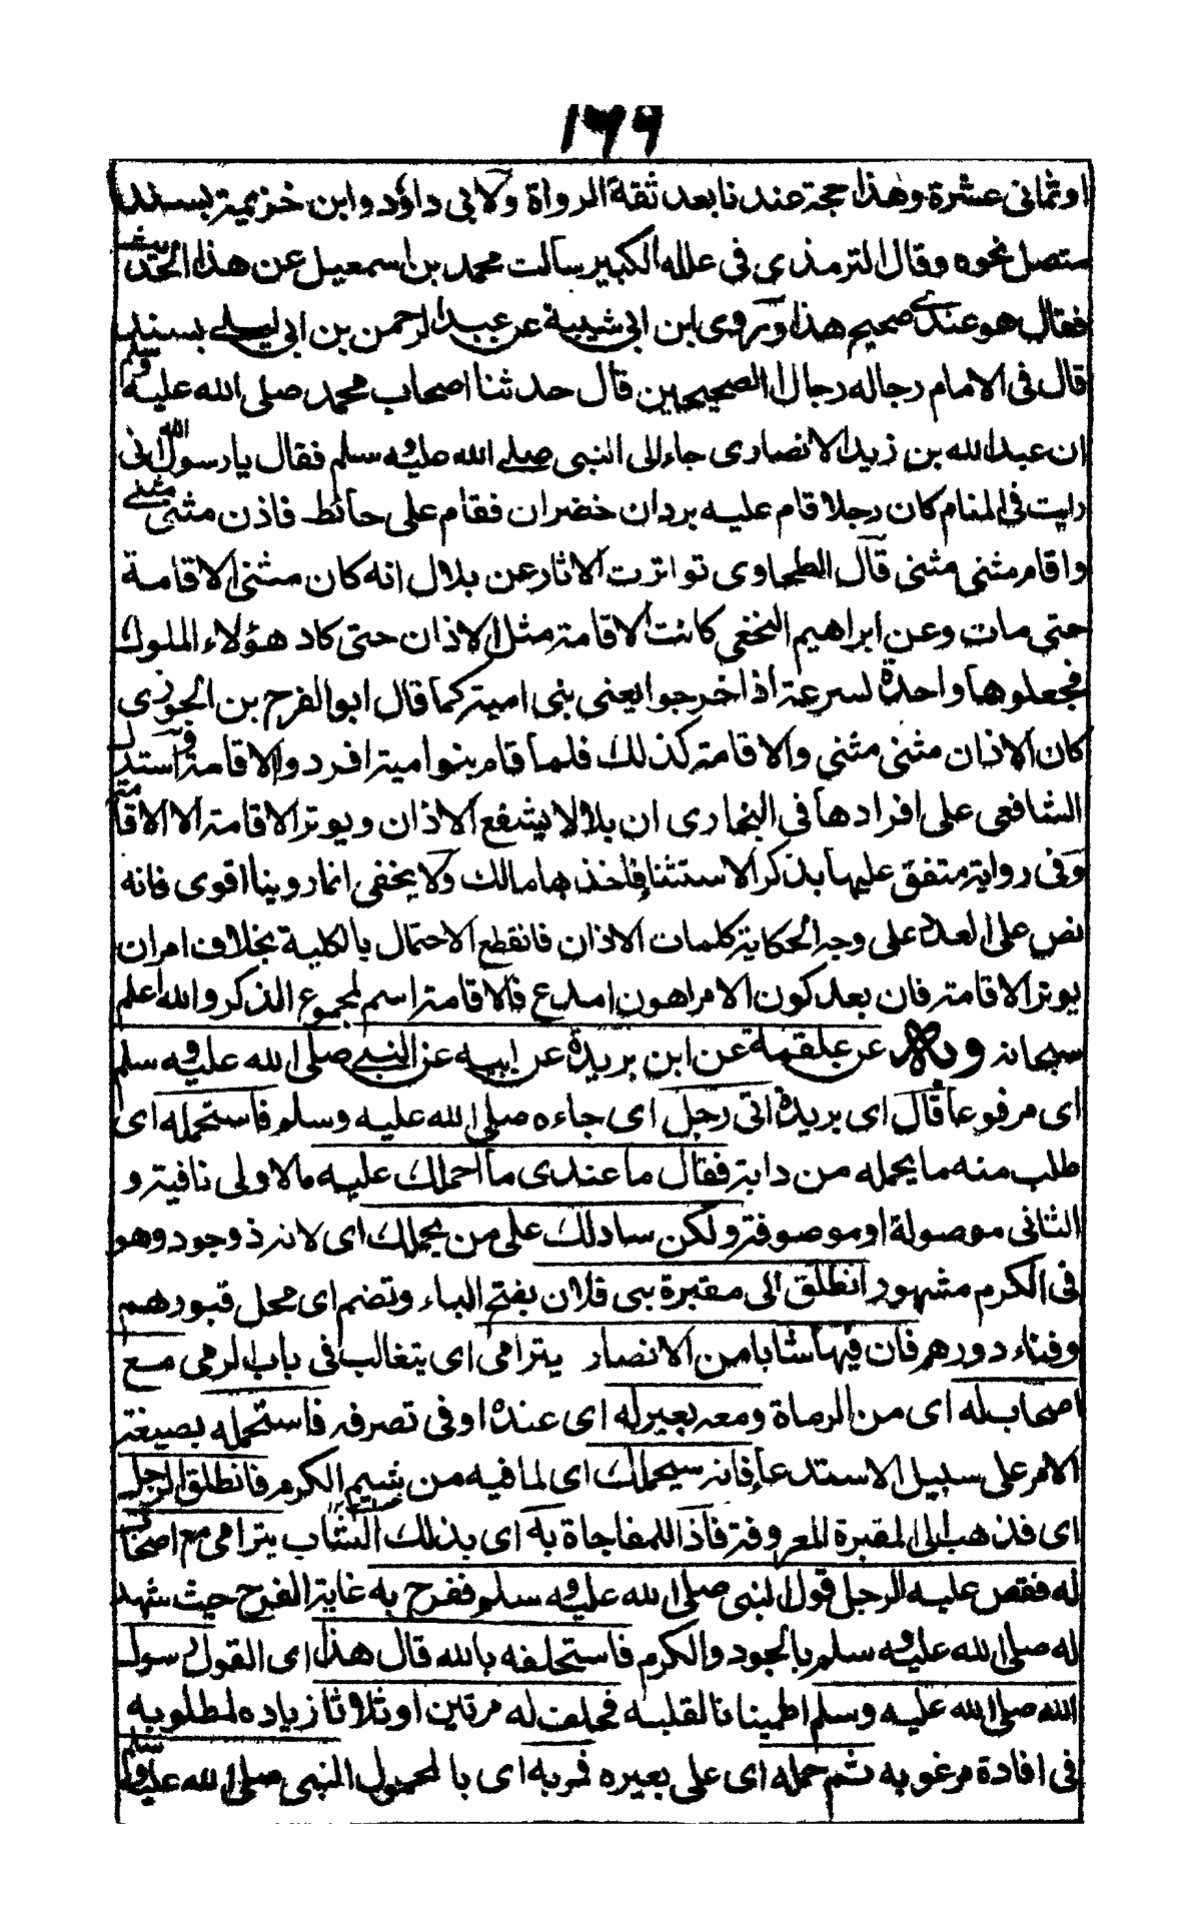 ١٦٦
او ثماني عشرة وهذا حجة عندنا بعد ثقة الرواة ولابي داؤد وابن خزيمة بسند
متصل نحوه وقال الترمذي في علله الكبير سالت محمد بن اسمعيل عن هذا الحديث
فقال هو عندي صحيح هذا وروى ابن ابي شيبة عن عبد الرحمن بن ابي ليلى بسند
قال في الامام رجاله رجال الصحيحين قال حدثنا اصحاب محمد صلى الله عليه وسلم
ان عبد الله بن زيد الانصارى جاء الى النبى صلى الله عليه وسلم فقال يا رسول الله انى
رايت في المنام كان رجلا قام عليه بردان خضران فقام على حائط فاذن مثنى مثنى
واقام مثنى مثنى قال الطحاوى تواترت الاثار عن بلال انه كان مثنى الاقامة
حتى مات وعن ابراهيم النخعي كانت الاقامة مثل الاذان حتى كاد هؤلاء الملوك
فجعلوها واحدة لسرعة اذا خرجوا يعنى بنى امية كما قال ابو الفرج بن الجوزى
كان الاذان مثنى مثنى والاقامة كذلك فلما قام بنو امية افردوا الاقامة واستدل
الشافعى على افرادها في البخارى ان بلالا يشفع الاذان ويوتر الاقامة الا الاقامة
وفى رواية متفق عليها بذكر الاستثناء فاخذ بها مالك ولا يخفى انما روينا اقوى فانه
نص على العدد على وجه الحكاية كلمات الاذان فانقطع الاحتمال بالكلية بخلاف امر ان
يوتر الاقامة فان بعد كون الامر اهون امدع فالاقامة اسم لمجموع الذكر والله اعلم
سبحانه وبه عن علقمة عن ابن بريدة عن ابيه عن النبي صلى الله عليه وسلم
اى مرفوعا قال اى بريدة اتى رجل اى جاءه صلى الله عليه وسلم فاستحمله اى
طلب منه ما يحمله من دابة فقال ما عندى ما احملك عليه ما الاولى نافية و
الثانى موصولة او موصوفة ولكن سادلك على من يحملك اى لانه ذو جود وهو
فى الكرم مشهور انطلق الى مقبرة بنى فلان بفتح الباء وتضم اى محل قبورهم
وفناء دورهم فان فيها شابا من الانصار يترامى اى يتغالب فى باب الرمى مع
اصحاب له اى من الرماة ومعه بعير له اى عنده او فى تصرفه فاستحمله بصيغة
الامر على سبيل الاستدعاء فانه سيحملك اى لما فيه من شيم الكرم فانطلق الرجل
اى فذهب الى المقبرة المعروفة فاذا للمفاجاة به اى بذلك الشاب يترامى مع اصحاب
له فقص عليه الرجل قول النبى صلى الله عليه وسلم ففرح به غاية الفرح حيث شهد
له صلى الله عليه وسلم بالجود والكرم فاستحلفه بالله قال هذا اى القول رسول
الله صلى الله عليه وسلم اطمينانا لقلبه فحلف له مرتين او ثلاثا زياده لمطلوبه
فى افادة مرغوبه ثم حمله اى على بعيره فمر به اى بالمحمول النبى صلى الله عليه وسلم